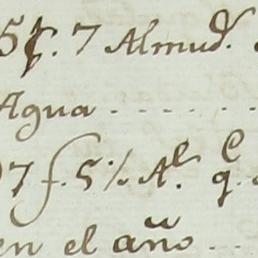 5f. 7 Almud.^s
Agua . . . . . .
7 f. 5 ½ Al.^s q.^e
en el año ...